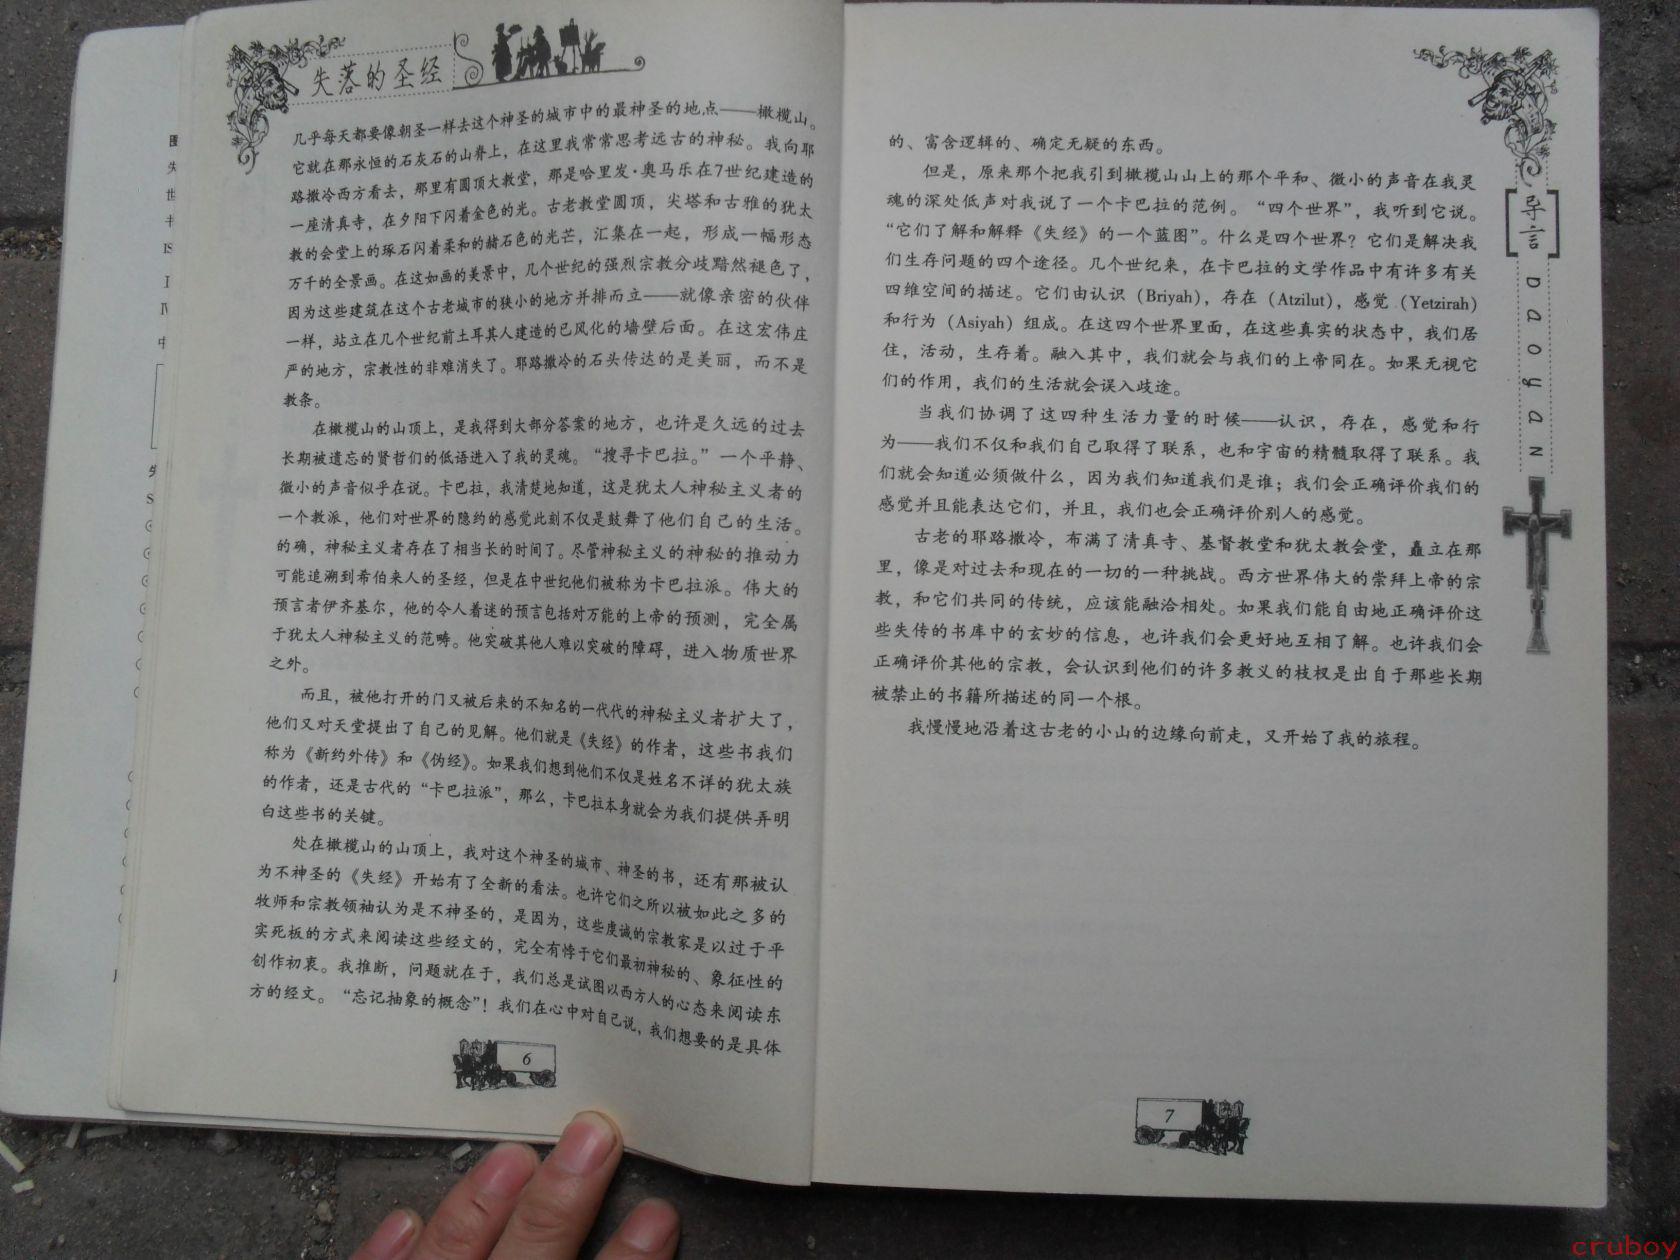 失落的圣经
几乎每天都要像朝圣一样去这个神圣的城市中的最神圣的地点——橄榄山。
它就在那永恒的石灰石的山脊上，在这里我常常思考远古的神秘。我向耶
路撒冷西方看去，那里有圆顶大教堂，那是哈里发·奥马乐在7世纪建造的
一座清真寺，在夕阳下闪着金色的光。古老教堂圆顶，尖塔和古雅的犹太
教的会堂上的琢石闪着柔和的赭石色的光芒，汇集在一起，形成一幅形态
万千的全景画。在这如画的美景中，几个世纪的强烈宗教分歧黯然褪色了，
因为这些建筑在这个古老城市的狭小的地方并排而立——就像亲密的伙伴
一样，站立在几个世纪前土耳其人建造的已风化的墙壁后面。在这宏伟庄
严的地方，宗教性的非难消失了。耶路撒冷的石头传达的是美丽，而不是
教条。
在橄榄山的山顶上，是我得到大部分答案的地方，也许是久远的过去
长期被遗忘的贤哲们的低语进入了我的灵魂。“搜寻卡巴拉。”一个平静、
微小的声音似乎在说。卡巴拉，我清楚地知道，这是犹太人神秘主义者的
一个教派，他们对世界的隐约的感觉此刻不仅是鼓舞了他们自己的生活。
的确，神秘主义者存在了相当长的时间了。尽管神秘主义的神秘的推动力
可能追溯到希伯来人的圣经，但是在中世纪他们被称为卡巴拉派。伟大的
预言者伊齐基尔，他的令人着迷的预言包括对万能的上帝的预测，完全属
于犹太人神秘主义的范畴。他突破其他人难以突破的障碍，进入物质世界
之外。
而且，被他打开的门又被后来的不知名的一代代的神秘主义者扩大了，
他们又对天堂提出了自己的见解。他们就是《失经》的作者，这些书我们
称为《新约外传》和《伪经》。如果我们想到他们不仅是姓名不详的犹太族
的作者，还是古代的“卡巴拉派”，那么，卡巴拉本身就会为我们提供弄明
白这些书的关键。
处在橄榄山的山顶上，我对这个神圣的城市、神圣的书，还有那被认
为不神圣的《失经》开始有了全新的看法。也许它们之所以被如此之多的
牧师和宗教领袖认为是不神圣的，是因为，这些虔诚的宗教家是以过于平
实死板的方式来阅读这些经文的，完全有悖于它们最初神秘的、象征性的
创作初衷。我推断，问题就在于，我们总是试图以西方人的心态来阅读东
方的经文。“忘记抽象的概念”！我们在心中对自己说，我们想要的是具体
6
的、富含逻辑的、确定无疑的东西。
但是，原来那个把我引到橄榄山山上的那个平和、微小的声音在我灵
魂的深处低声对我说了一个卡巴拉的范例。“四个世界”，我听到它说。
“它们了解和解释《失经》的一个蓝图”。什么是四个世界？它们是解决我
们生存问题的四个途径。几个世纪来，在卡巴拉的文学作品中有许多有关
四维空间的描述。它们由认识（Briyah），存在（Atzilut），感觉（Yetzirah）
和行为（Asiyah）组成。在这四个世界里面，在这些真实的状态中，我们居
住，活动，生存着。融入其中，我们就会与我们的上帝同在。如果无视它
们的作用，我们的生活就会误入歧途。
当我们协调了这四种生活力量的时候——认识，存在，感觉和行
为——我们不仅和我们自己取得了联系，也和宇宙的精髓取得了联系。我
们就会知道必须做什么，因为我们知道我们是谁；我们会正确评价我们的
感觉并且能表达它们，并且，我们也会正确评价别人的感觉。
古老的耶路撒冷，布满了清真寺、基督教堂和犹太教会堂，矗立在那
里，像是对过去和现在的一切的一种挑战。西方世界伟大的崇拜上帝的宗
教，和它们共同的传统，应该能融洽相处。如果我们能自由地正确评价这
些失传的书库中的玄妙的信息，也许我们会更好地互相了解。也许我们会
正确评价其他的宗教，会认识到他们的许多教义的枝杈是出自于那些长期
被禁止的书籍所描述的同一个根。
我慢慢地沿着这古老的小山的边缘向前走，又开始了我的旅程。
导言
Daoyan
7
cruboy